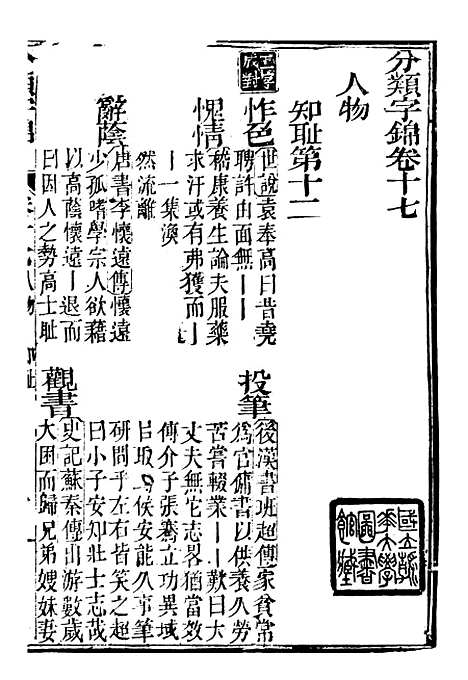 分類字錦卷十七
人物
知恥第十二
二字
成對
怍色
世說袁奉高曰昔堯
聘許由面無丨丨
愧情
嵇康養生論夫服藥
求汗或有弗獲而丨
丨一集渙
然流離
辭蔭
唐書李懷遠傳懷遠
少孤嗜學宗人欲藉
以高蔭懷遠丨退而
曰因人之勢高士恥
投筆
後漢書班超傳家貧常
為官傭書以供養久勞
苦嘗輟業丨丨歎曰大
丈夫無它志畧猶當效
傅介子張騫立功異域
以取封侯安能久事筆
研間乎左右皆笑之超
曰小子安知壯士志哉
觀書
史記蘇秦傳出游數歲
大困而歸兄弟嫂妹妻
國立
大學
圖書
館藏